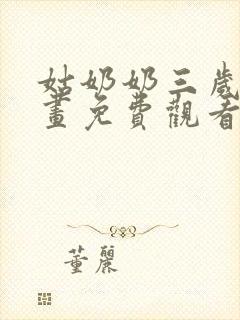 姑奶奶三歲
畫免費觀看
董麗